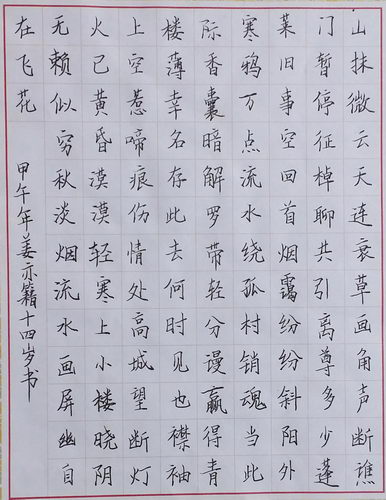 山抹微云天连衰草画角声断谯
门暂停征棹聊共引离尊多少蓬
莱旧事空回首烟霭纷纷斜阳外
寒鸦万点流水绕孤村销魂当此
际香囊暗解罗带轻分谩赢得青
楼薄幸名存此去何时见也襟袖
上空惹啼痕伤情处高城望断灯
火已黄昏漠漠轻寒上小楼晓阴
无赖似穷秋淡烟流水画屏幽自
在飞花 甲午年姜亦籍十四岁书